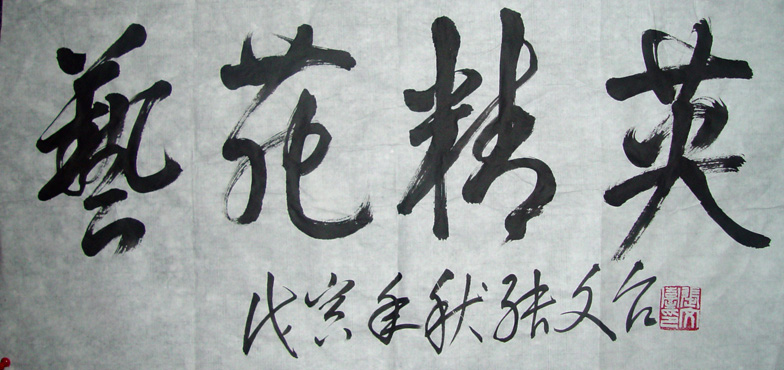 藝苑精英
戊寅年秋張文台